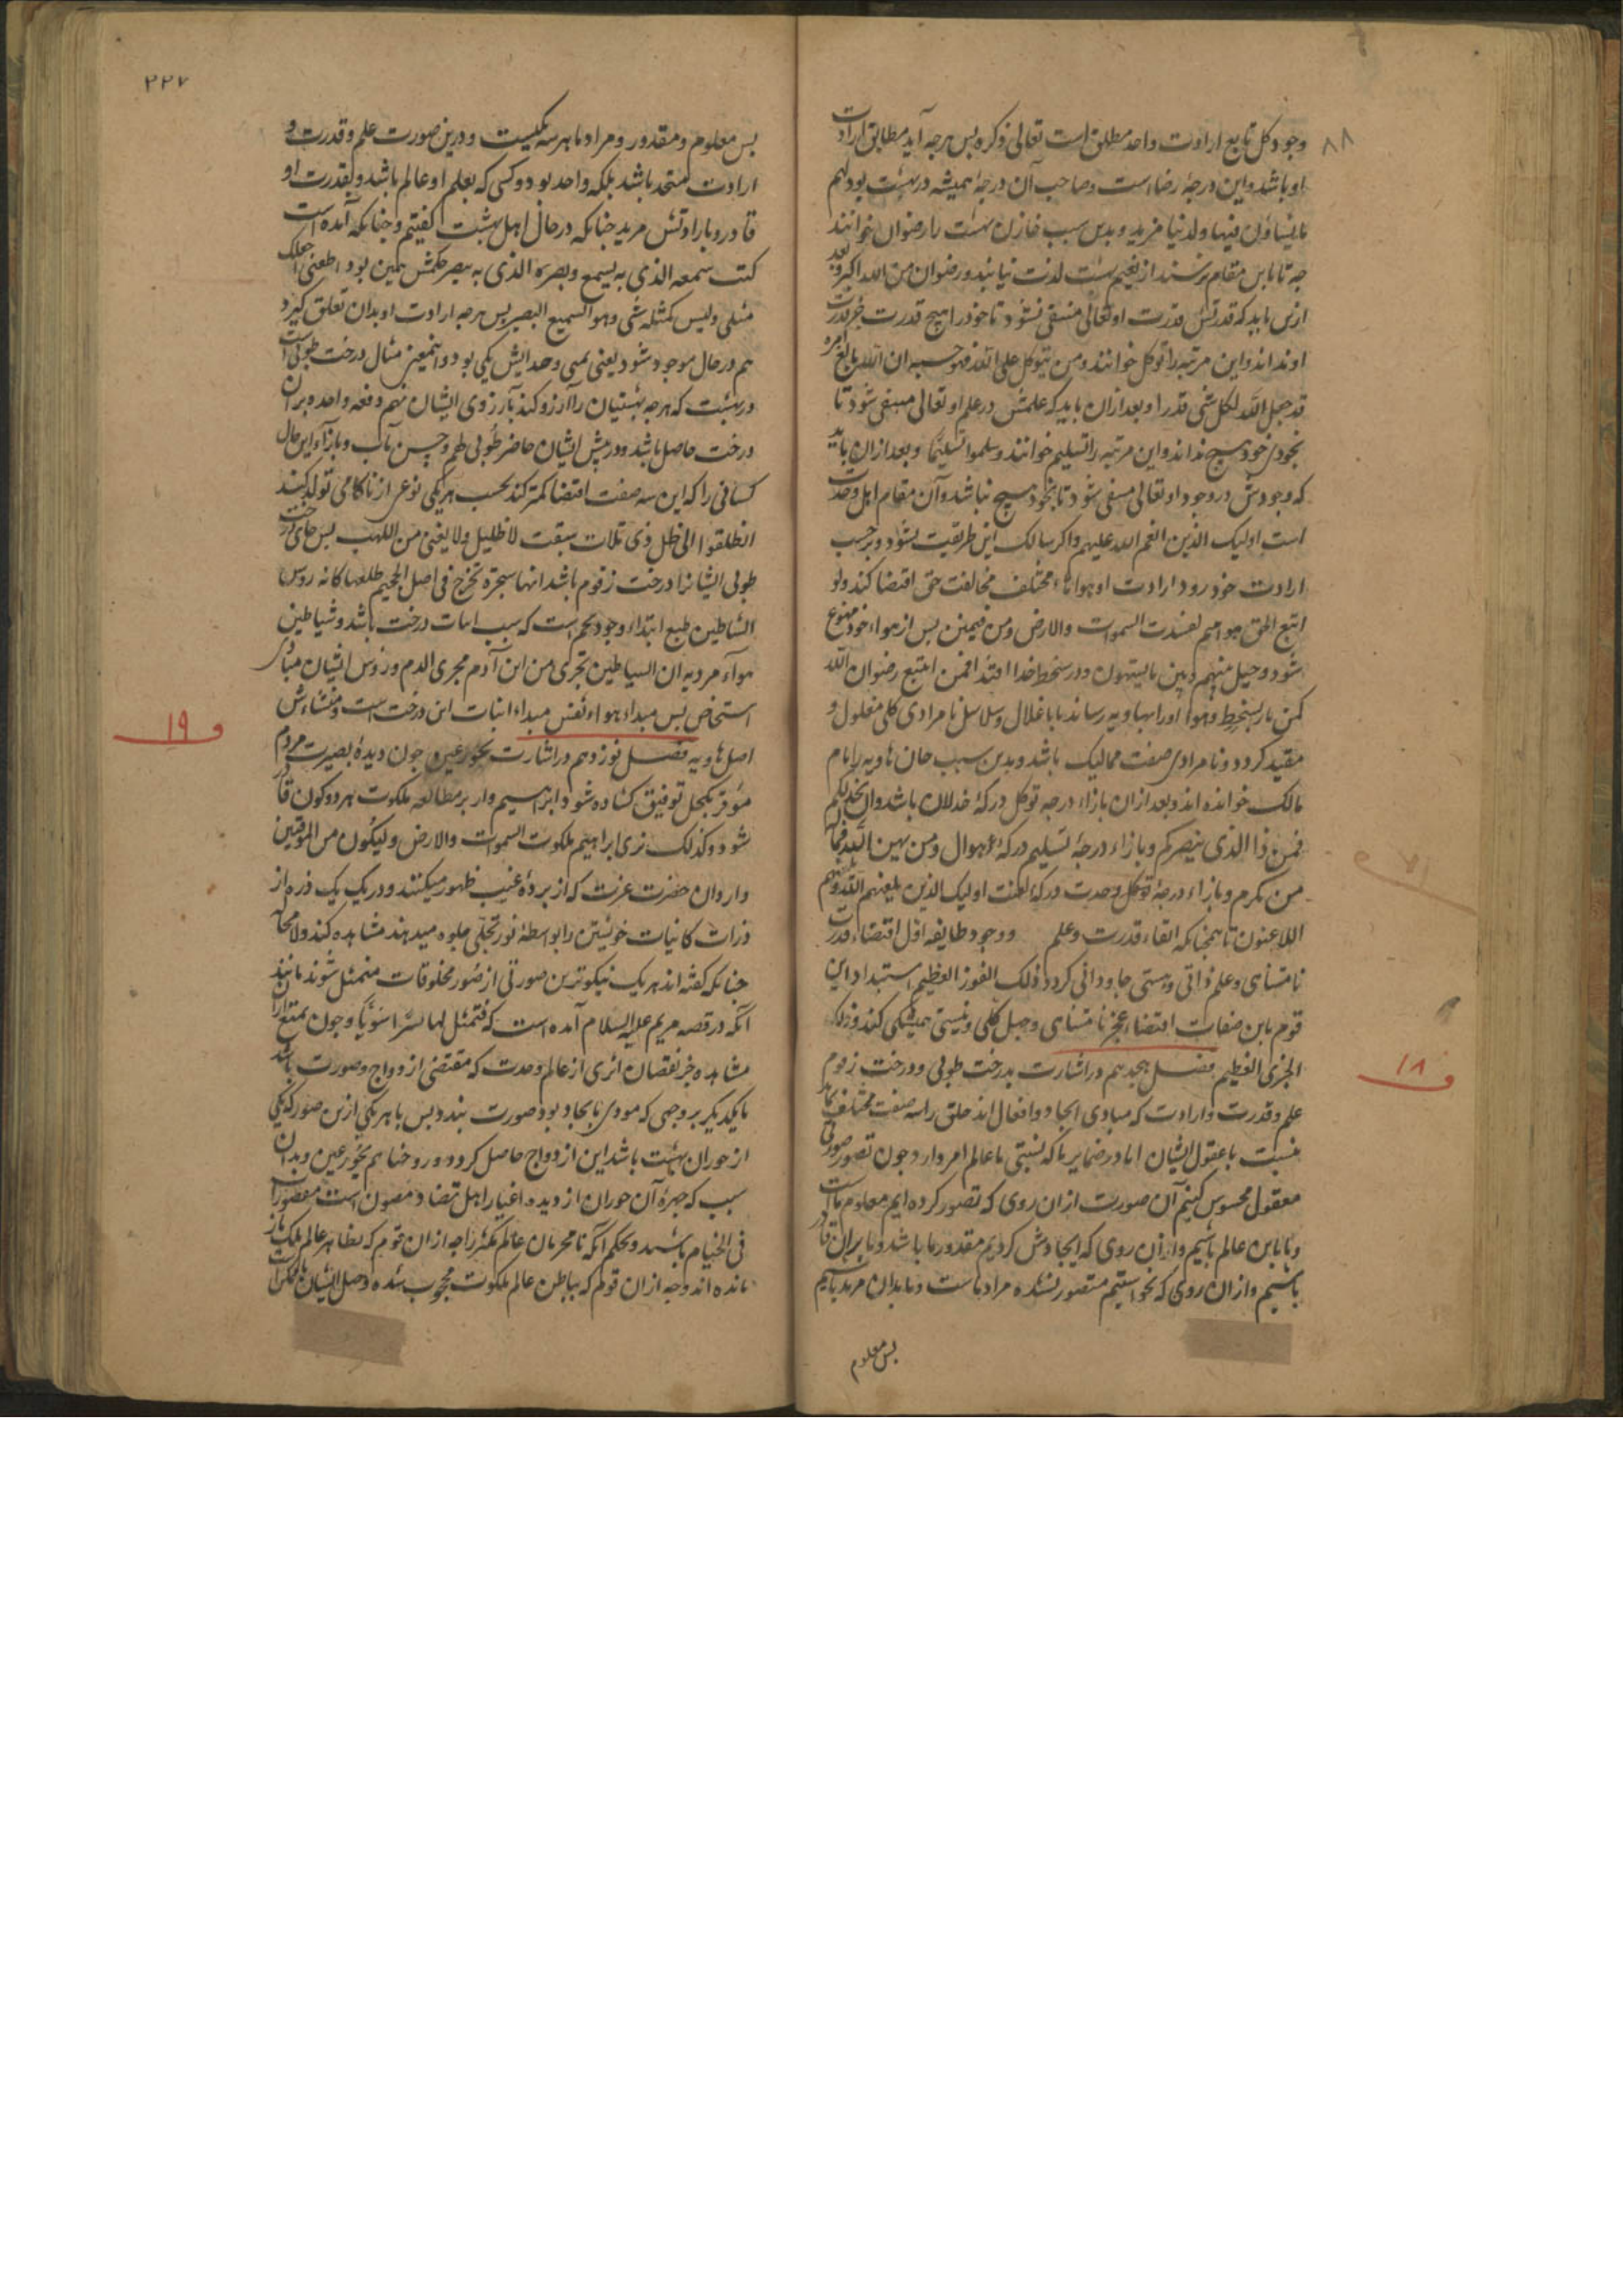 ٨٨
وجود کل تابع ارادت واحد مطلق است تعالی ذکره بس هرجه آید مطابق ارادت
او باشد و این درجهٔ رضا است و صاحب آن درجهٔ همیشه در بهشت بود لهم
ما یشاؤن فیها ولدنیا مزید و بدین سبب خازن بهشت را رضوان خوانند
جه تا باین مقام نرسند از نعیم بهشت لذت نیابند و رضوان من الله اکبر و بعد
ازین باید که قدرتش در قدرت او تعالی منتفی شود تا خود را هیچ قدرت جز قدرت
او نداند و این مرتبه را توکل خوانند و من یتوکل علی الله فهو حسبه ان الله بالغ امره
قد جعل الله لکل شی قدرا و بعد ازان باید که علمش در علم او تعالی منتفی شود تا
بخودی خود هیچ نداند و این مرتبه را تسلیم خوانند و سلموا تسلیمًا و بعد ازان باید
که وجودش در وجود او تعالی منتفی شود تا بخود هیچ نباشد و آن مقام اهل وحدت
است اولیک الذین انعم الله علیهم و اکر سالک این طریقت نشود و برحسب
ارادت خود رود ارادت او هواهاء مختلف مخالفت حق اقتضا کند ولو
اتبع الحق هواهم لفسدت السموات والارض ومن فیهن بس از هواء خود ممنوع
شود و حیل بینهم وبین ما یشتهون و در سخط خدا افتد افمن اتبع رضوان الله
کمن باء بسخط و هوا او را بهاویه رساند با اغلال و سلاسل نامرادی کلی مغلول و
مقید کردد و نامرادی صفت ممالیک باشد و بدین سبب خازن هاویه را نام
مالک خوانده اند و بعد ازان بازاء درجه توکل درکهٔ خذلان باشد وان یخذلکم
فمن ذا الذی ینصرکم و بازاء درجهٔ تسلیم درکهٔ هوان ومن یهن الله فما له
من مکرم و بازاء درجهٔ وحدت درکهٔ لعنت اولیک الذین یلعنهم الله و یلعنهم
اللاعنون تا همجنانکه انتفاء قدرت و علم و وجود طایفه اول اقتضاء قدرت
نامتناهی و علم ذاتی و هستی جاودانی کردد ذلک الفوز العظیم استبداد این
قوم باین صفات اقتضاء عجز نامتناهی و جهل کلی و نیستی همیشکی کند و ذلک
الخزی العظیم فصل هجدهم در اشارت بدرخت طوبی و درخت زقوم
ف ١٨
علم و قدرت و ارادت که مبادی ایجاد و افعال اند خلق را سه صفت مختلف نماید
نسبت با عقول ایشان اما در ضمایر ما که نسبتی با عالم امر دارد جون تصور صورتی
معقول محسوس کنیم آن صورت ازان روی که تصور کرده ایم معلوم ما است
و ما باین عالم باشیم و ازان روی که ایجادش کردیم مقدور ما باشد و ما بران قادر
باشیم و ازان روی که نخواستیم متصور نشده مراد ماست و ما بدان مرید باشیم
بس معلوم
٢٢٧
بس معلوم و مقدور و مراد ما هر سه یکیست و درین صورت علم و قدرت و
ارادت متحد باشد بلکه واحد بود و کسی که بعلم او عالم باشد و بقدرت او
قادر و بارادتش مرید جنانکه در حال اهل بهشت کفتیم و جنانکه آمده است
کنت سمعه الذی به یسمع و بصره الذی به یبصر حکمش همین بود اطعنی اجعلک
مثلی ولیس کمثله شی وهو السمیع البصیر بس هرجه ارادت او بدان تعلق کیرد
هم در حال موجود شود یعنی تمنی و جدانش یکی بود و اینمعنی مثال درخت طوبی است
در بهشت که هرجه بهشتیان را آرزو کند بآرزوی ایشان بهم دفعه واحده بران
درخت حاصل باشد و در پیش ایشان حاضر طُوبی لهم و حسن مآب و بازاء این حال
کسانی را که این سه صفت اقتضا کثرت کند بحسب هریکی نوعی از ناکامی تولد کند
انطلقوا الی ظل ذی ثلاث شعب لا ظلیل ولا یغنی من اللهب بس بجای درخت
طوبی ایشانرا درخت زقوم باشد انها شجرة تخرج فی اصل الجحیم طلعها کانه روس
الشیاطین طبع ابتداء وجود تخم است که سبب انبات درخت باشد و شیاطین
هواء مردیه ان الشیاطین تجری من ابن آدم مجری الدم و رؤس ایشان مبادی
استخاص بس مبداء هواء نفس مبداء انبات این درخت است و منشاءش
ف ١٩
اصل هاویه فصل نوزدهم در اشارت بحور عین جون دیدهٔ بصیرت مردم
موقن بکحل توفیق کشاده شود ابراهیم وار بر مطالعه ملکوت هر دو کون قادر
شود وکذلک نری ابراهیم ملکوت السموات والارض ولیکون من الموقنین
و اردان حضرت عزت که از بردهٔ غیب ظهور میکنند و در یک یک ذره از
ذرات کاینات خویشتن را بواسطهٔ نور تجلی جلوه میدهند مشاهده کند و لا محاله
جنانکه کفته اند هریک نیکوترین صورتی از صُوَر مخلوقات متمثل شوند مانند
آنکه در قصه مریم علیه السلام آمده است که فتمثل لها بشرًا سَوِیًّا و جون تمتع ازان
مشاهده جز بفیضان اثری از عالم وحدت که مقتضی ازدواج و صورت باشد
با یکدیکر بروجهی که مودی باتحاد بود صورت نبندد بس با هریکی ازین صور که یکی
از حوران بهشت باشد این ازدواج حاصل کردد و زوجناهم بحُور عین و بدان
سبب که جهرهٔ آن حوران از دیده اغیار اهل تضاد مصون است مقصورات
فی الخیام باشند و بحکم آنکه نامحرمان عالم تکثر را جه ازان قوم که بظاهر عالم ملک باز
مانده اند و جه ازان قوم که بباطن عالم ملکوت محجوب شده وصل ایشان ناممکن است